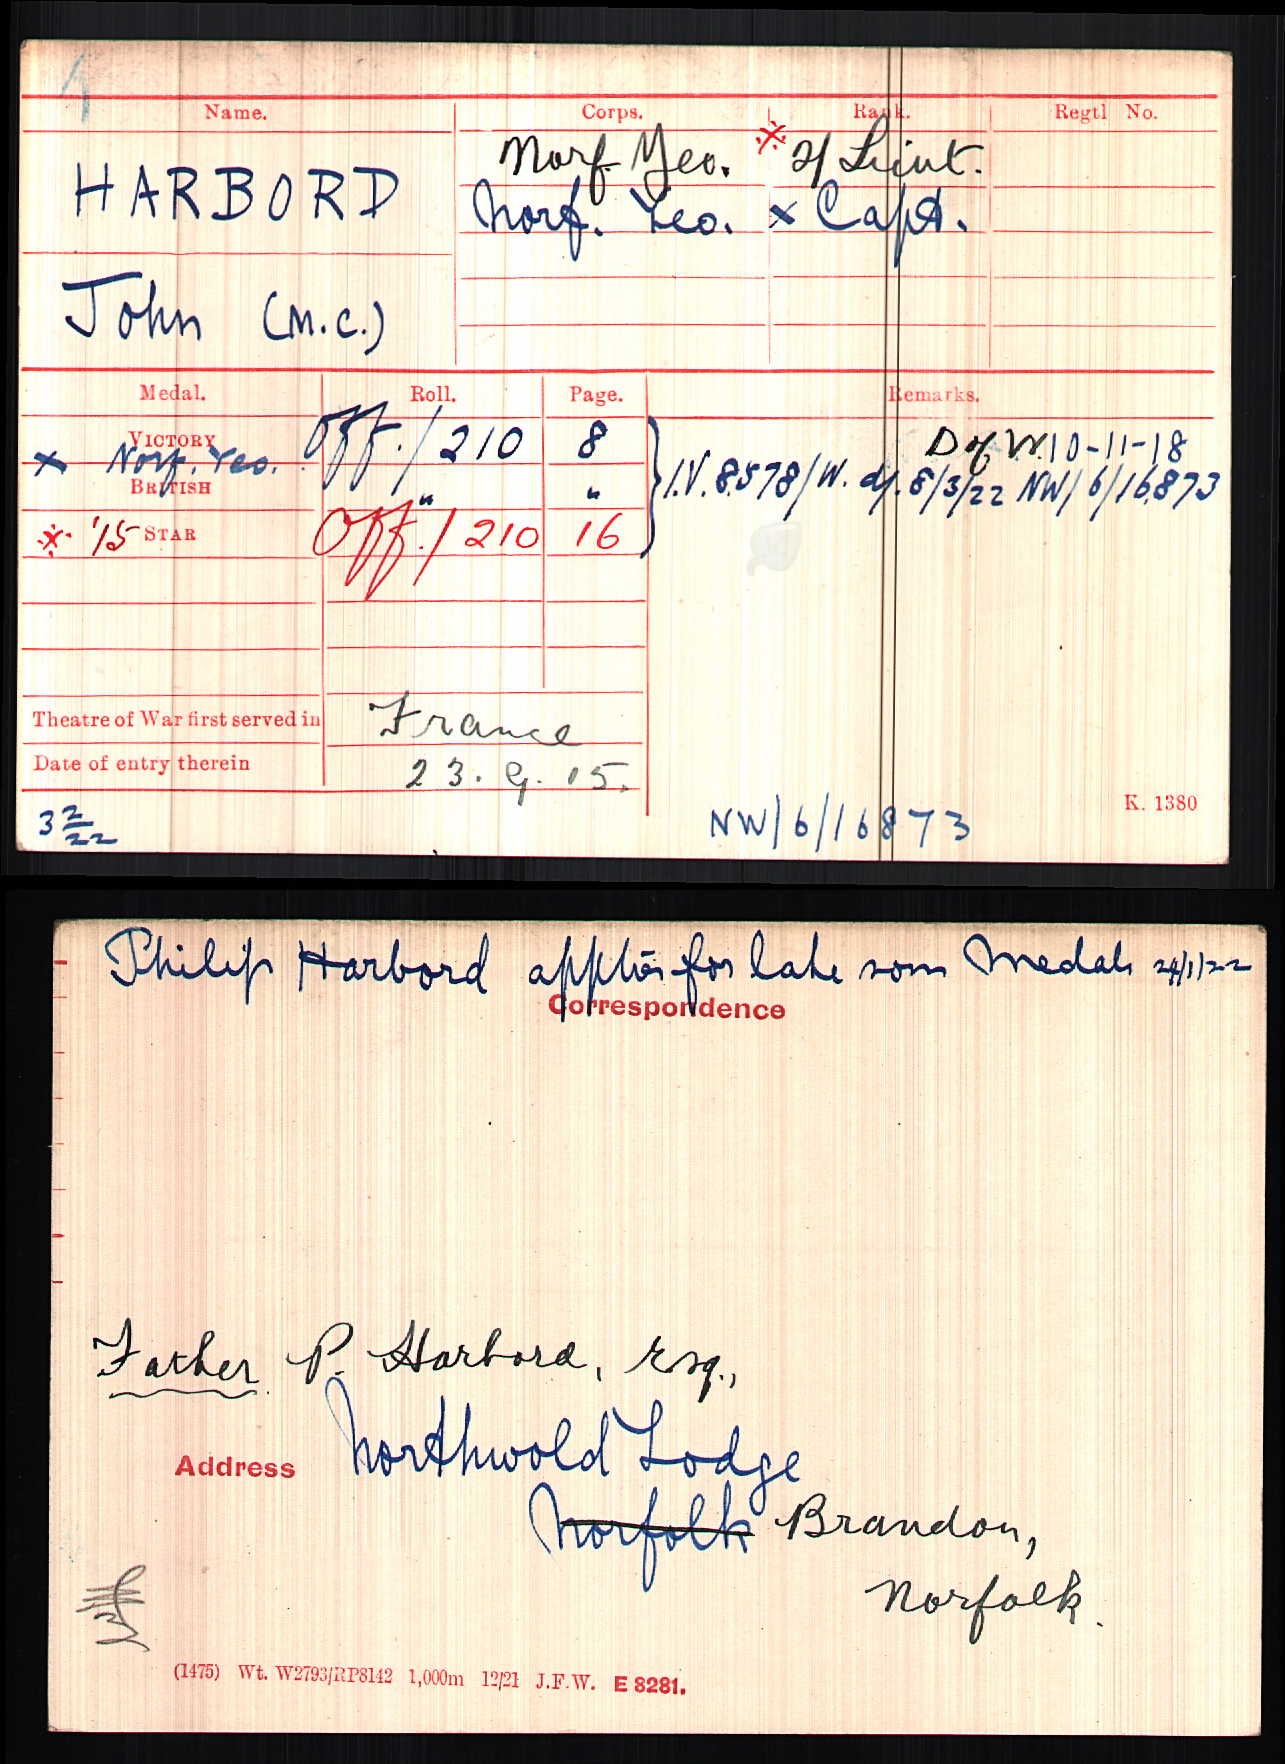 Name. Corps. Rank. Regtl No.
HARBORD Norf. Yeo. ※ 2/ Lieut.
Norf. Yeo. x Capt.
John (M.C.)
Medal. Roll. Page. Remarks.
VICTORY Off./210 8 D of W. 10-11-18
x Norf. Yeo.
BRITISH " " I.V. 8578/W. d/. 8/3/22 NW/6/16873
※ '15 STAR Off./210 16
Theatre of War first served in France
Date of entry therein 23.9.15.
3 2/22 NW/6/16873
K. 1380
Philip Harbord appltn for late sons Medals 24/1/22
Correspondence
Father P. Harbord, Esq.,
Address Northwold Lodge
Norfolk Brandon,
Norfolk.
(1475) Wt. W2793/RP8142 1,000m 12/21 J.F.W. E 8281.